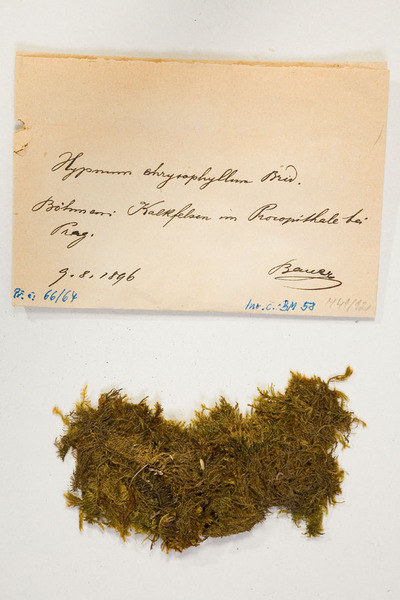 Hypnum chrysophyllum Brid.
Böhmen: Kalkfelsen im Procopithale bei
Prag.
9. 8. 1896 Bauer
Př. č. 66/64 Inv. č. BM 58